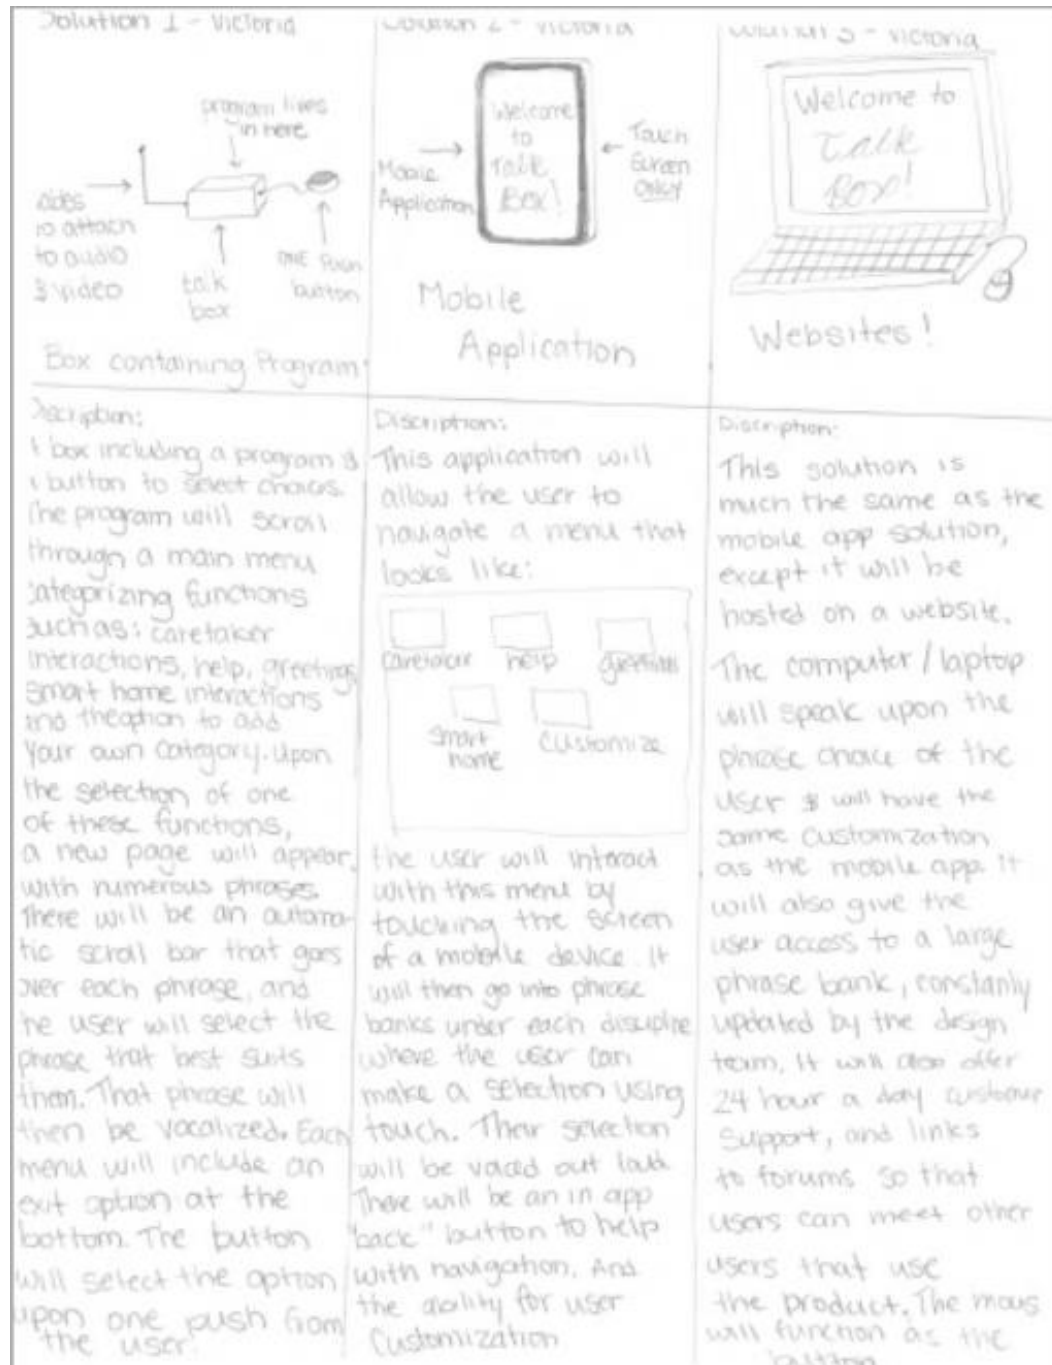 Solution 1 - Victoria
program lives
in here
to attach
to audio
& video
talk
box
ONE Push
button
Box containing Program
Discription:
box including a program &
button to select choices.
The program will scroll
through a main menu
categorizing functions
such as: caretaker
interactions, help, greetings
smart home interactions
and the option to add
your own category. Upon
the selection of one
of these functions,
a new page will appear,
with numerous phrases.
There will be an automa-
tic scroll bar that goes
over each phrase, and
the user will select the
phrase that best suits
them. That phrase will
then be vocalized. Each
menu will include an
exit option at the
bottom. The button
will select the option
upon one push from
the user.
Solution 2 - Victoria
Mobile
Application
Welcome
to
Talk
Box!
Touch
Screen
ONLY
Mobile
Application
Discription:
This application will
allow the user to
navigate a menu that
looks like:
caretaker help greetings
smart
home
customize
the user will interact
with this menu by
touching the screen
of a mobile device. It
will then go into phrase
banks under each
where the user can
make a selection using
touch. Their selection
will be voiced out loud.
There will be an in app
"back" button to help
with navigation. And
the ability for user
customization
Solution 3 - Victoria
Welcome to
Talk
Box!
Websites!
Discription:
This solution is
much the same as the
mobile app solution,
except it will be
hosted on a website.
The computer/laptop
will speak upon the
phrase choice of the
user & will have the
same customization
as the mobile app. It
will also give the
user access to a large
phrase bank, constanly
updated by the design
team. It will also offer
24 hour a day customer
support, and links
to forums so that
users can meet other
users that use
the product. The mous
will function as the
button